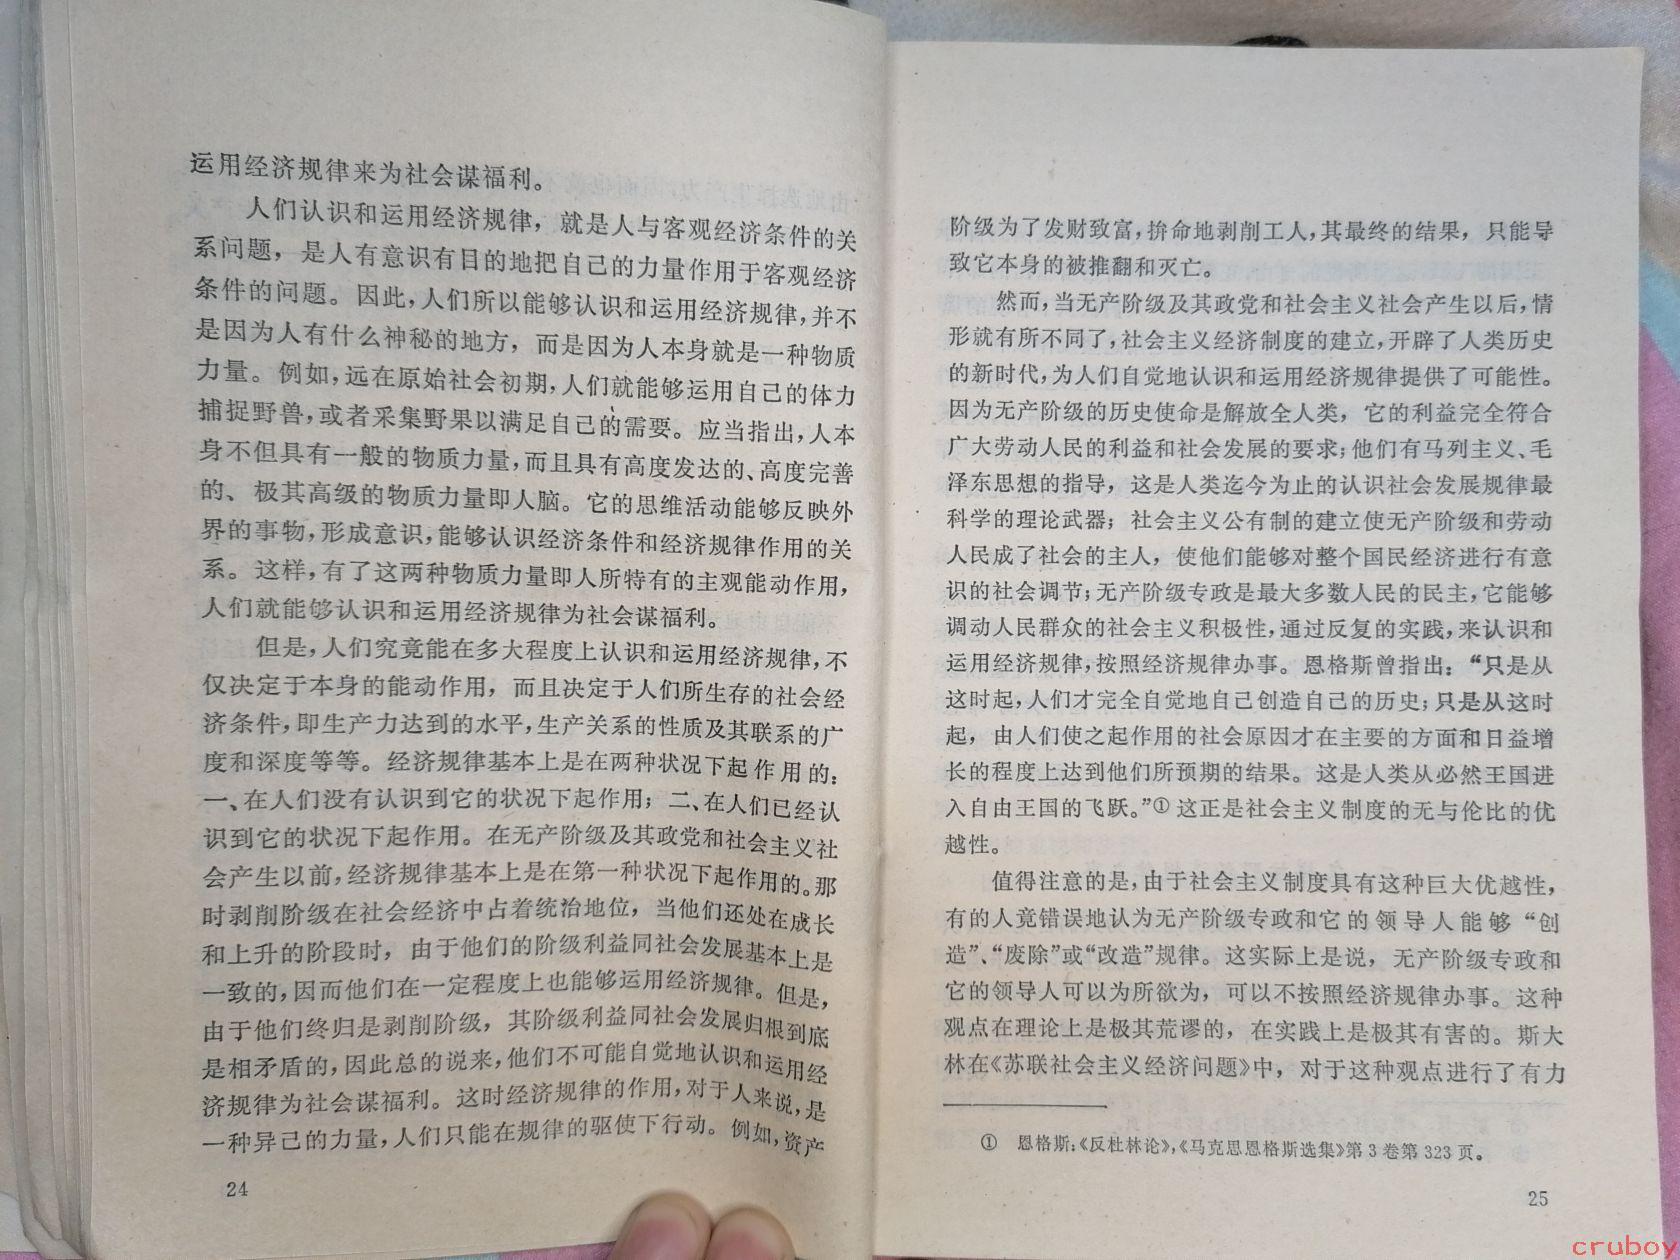 运用经济规律来为社会谋福利。
人们认识和运用经济规律，就是人与客观经济条件的关
系问题，是人有意识有目的地把自己的力量作用于客观经济
条件的问题。因此，人们所以能够认识和运用经济规律，并不
是因为人有什么神秘的地方，而是因为人本身就是一种物质
力量。例如，远在原始社会初期，人们就能够运用自己的体力
捕捉野兽，或者采集野果以满足自己的需要。应当指出，人本
身不但具有一般的物质力量，而且具有高度发达的、高度完善
的、极其高级的物质力量即人脑。它的思维活动能够反映外
界的事物，形成意识，能够认识经济条件和经济规律作用的关
系。这样，有了这两种物质力量即人所特有的主观能动作用，
人们就能够认识和运用经济规律为社会谋福利。
但是，人们究竟能在多大程度上认识和运用经济规律，不
仅决定于本身的能动作用，而且决定于人们所生存的社会经
济条件，即生产力达到的水平，生产关系的性质及其联系的广
度和深度等等。经济规律基本上是在两种状况下起作用的：
一、在人们没有认识到它的状况下起作用；二、在人们已经认
识到它的状况下起作用。在无产阶级及其政党和社会主义社
会产生以前，经济规律基本上是在第一种状况下起作用的。那
时剥削阶级在社会经济中占着统治地位，当他们还处在成长
和上升的阶段时，由于他们的阶级利益同社会发展基本上是
一致的，因而他们在一定程度上也能够运用经济规律。但是，
由于他们终归是剥削阶级，其阶级利益同社会发展归根到底
是相矛盾的，因此总的说来，他们不可能自觉地认识和运用经
济规律为社会谋福利。这时经济规律的作用，对于人来说，是
一种异己的力量，人们只能在规律的驱使下行动。例如，资产
24
阶级为了发财致富，拚命地剥削工人，其最终的结果，只能导
致它本身的被推翻和灭亡。
然而，当无产阶级及其政党和社会主义社会产生以后，情
形就有所不同了，社会主义经济制度的建立，开辟了人类历史
的新时代，为人们自觉地认识和运用经济规律提供了可能性。
因为无产阶级的历史使命是解放全人类，它的利益完全符合
广大劳动人民的利益和社会发展的要求；他们有马列主义、毛
泽东思想的指导，这是人类迄今为止的认识社会发展规律最
科学的理论武器；社会主义公有制的建立使无产阶级和劳动
人民成了社会的主人，使他们能够对整个国民经济进行有意
识的社会调节；无产阶级专政是最大多数人民的民主，它能够
调动人民群众的社会主义积极性，通过反复的实践，来认识和
运用经济规律，按照经济规律办事。恩格斯曾指出：“只是从
这时起，人们才完全自觉地自己创造自己的历史；只是从这时
起，由人们使之起作用的社会原因才在主要的方面和日益增
长的程度上达到他们所预期的结果。这是人类从必然王国进
入自由王国的飞跃。”①这正是社会主义制度的无与伦比的优
越性。
值得注意的是，由于社会主义制度具有这种巨大优越性，
有的人竟错误地认为无产阶级专政和它的领导人能够“创
造”、“废除”或“改造”规律。这实际上是说，无产阶级专政和
它的领导人可以为所欲为，可以不按照经济规律办事。这种
观点在理论上是极其荒谬的，在实践上是极其有害的。斯大
林在《苏联社会主义经济问题》中，对于这种观点进行了有力
① 恩格斯：《反杜林论》，《马克思恩格斯选集》第3卷第323页。
25
cruboy